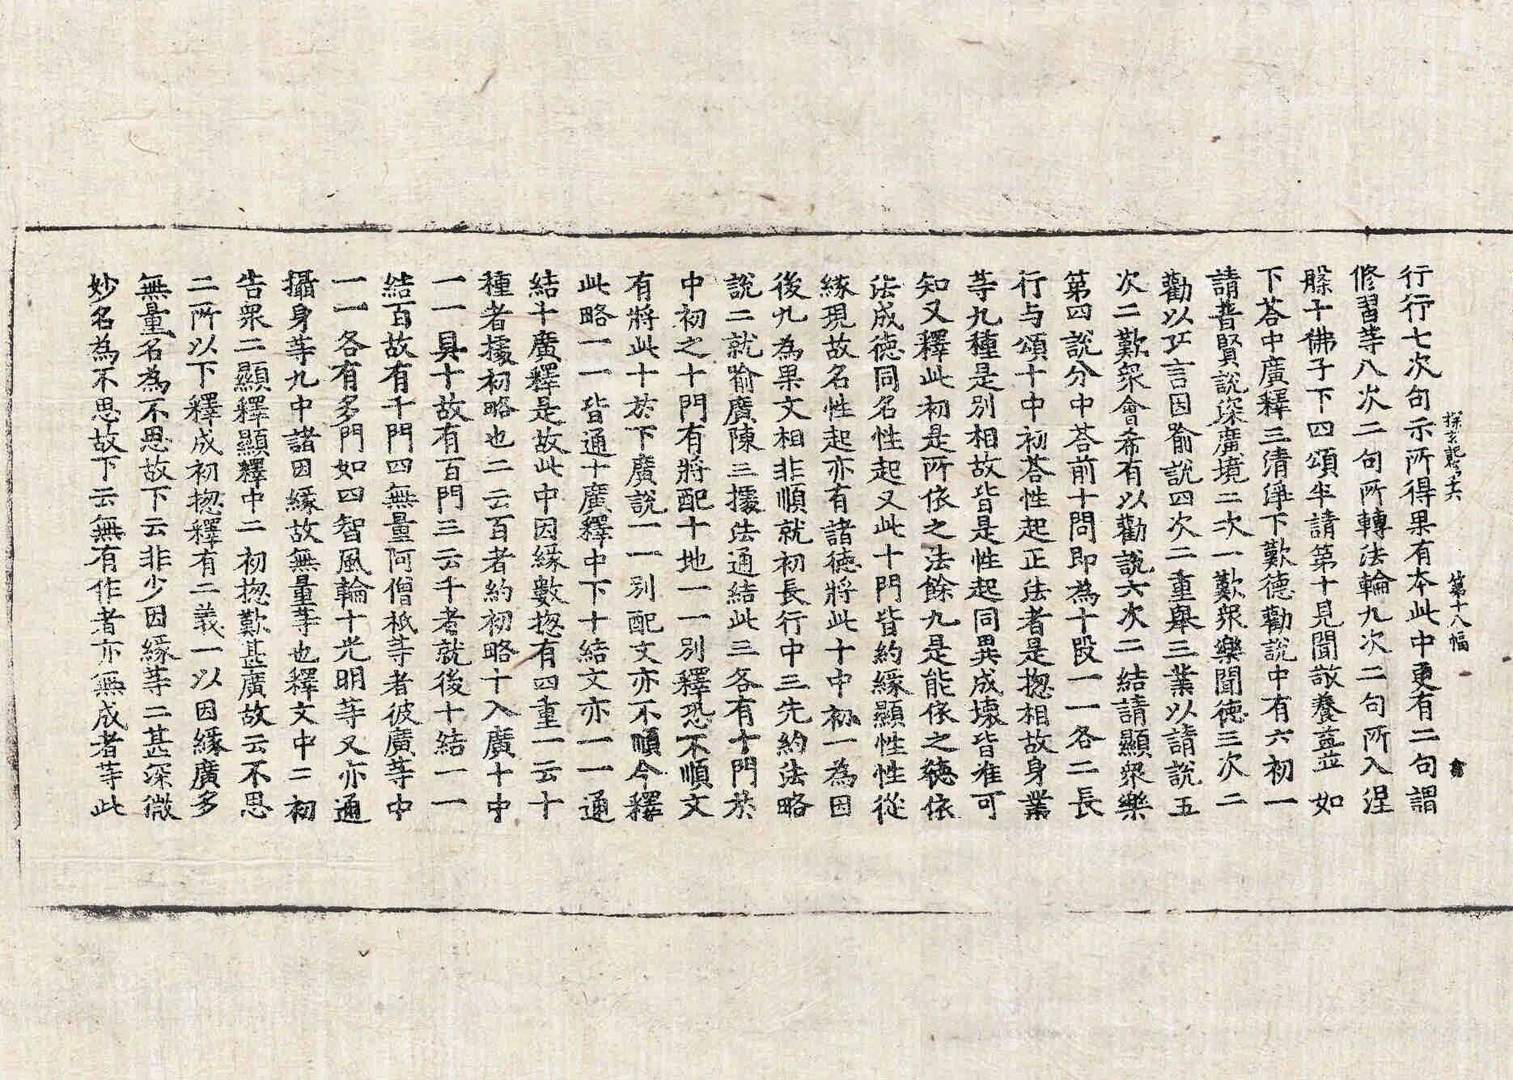 探玄記卷十六 第十八幅
行行七次句示所得果有本此中更有二句謂
修習等八次二句所轉法輪九次二句所入涅
槃十佛子下四頌半請第十見聞敬養益並如
下荅中廣釋三清淨下歎德勸說中有六初一
請普賢說深廣境二次一歎衆樂聞德三次二
勸以巧言因喻說四次二重舉三業以請說五
次二歎衆會希有以勸說六次二結請顯衆樂
第四說分中荅前十問即為十段一一各二長
行与頌十中初荅性起正法者是揔相故身業
等九種是別相故皆是性起同異成壞皆准可
知又釋此初是所依之法餘九是能依之德依
法成德同名性起又此十門皆約緣顯性性從
緣現故名性起亦有諸德將此十中初一為因
後九為果文相非順就初長行中三先約法略
說二就喻廣陳三據法通結此三各有十門於
中初之十門有將配十地一一別釋恐不順文
有將此十於下廣說一一別配文亦不順今釋
此略一一皆通十廣釋中下十結文亦一一通
結十廣釋是故此中因緣數揔有四重一云十
種者據初略也二云百者約初略十入廣十中
一一具十故有百門三云千者就後十結一一
結百故有千門四無量阿僧祇等者彼廣等中
一一各有多門如四智風輪十光明等又亦通
攝身等九中諸因緣故無量等也釋文中二初
告衆二顯釋顯釋中二初揔歎甚廣故云不思
二所以下釋成初揔釋有二義一以因緣廣多
無量名為不思故下云非少因緣等二甚深微
妙名為不思故下云無有作者亦無成者等此